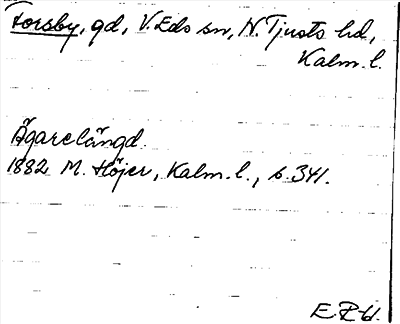 Forsby, gd, V. Eds sn, N. Tjusts hd,
Kalm. l.
Ägarelängd.
1882 M. Höjer, Kalm. l., s. 341.